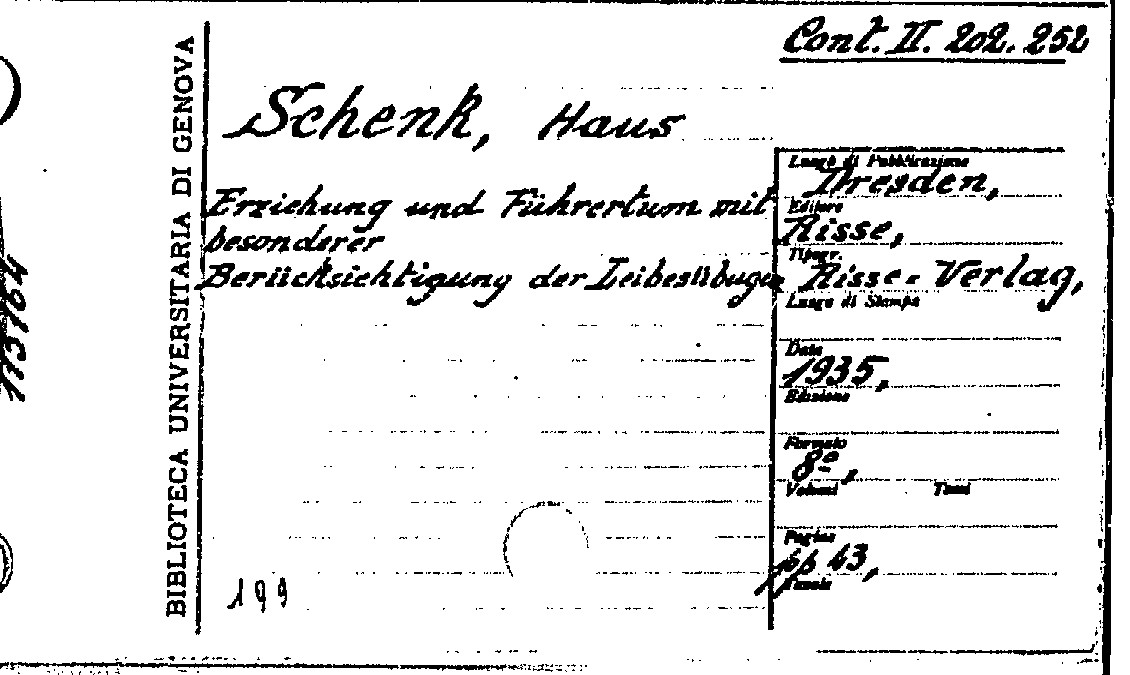 Cont. II. 202. 252
Schenk, Haus
Erziehung und Führertum mit
besonderer
Berücksichtigung der Leibesübugen
Luogo di Pubblicazione
Dresden,
Editore
Risse,
Tipogr.
Risse-Verlag,
Luogo di Stampa
Data
1935,
Edizione
Formato
8º,
Volumi Tomi
Pagine
pp 43,
Tavole
199
BIBLIOTECA UNIVERSITARIA DI GENOVA